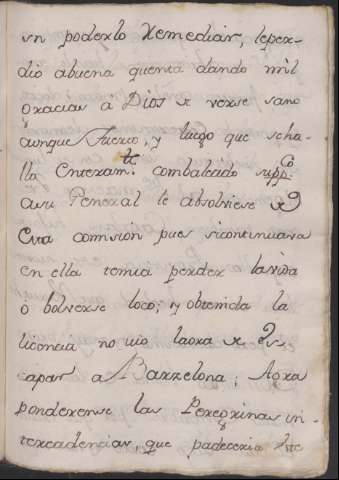 un poderlo Remediar, leper-
dio abuena quenta dando mil
gracias à Dios de verse sano
aunque Tuerto, y luego que seha-
lla Enteram.te combalecido supp.co
asu General le absolviese de
Esta comision pues sicontinuava
en ella temia perder lavida
o bolverse loco; y obtenida la
licencia no vio laora de Es-
capar a Barzelona; Aora
ponderense las Peregrinas in-
tercadencias, que padeceria este